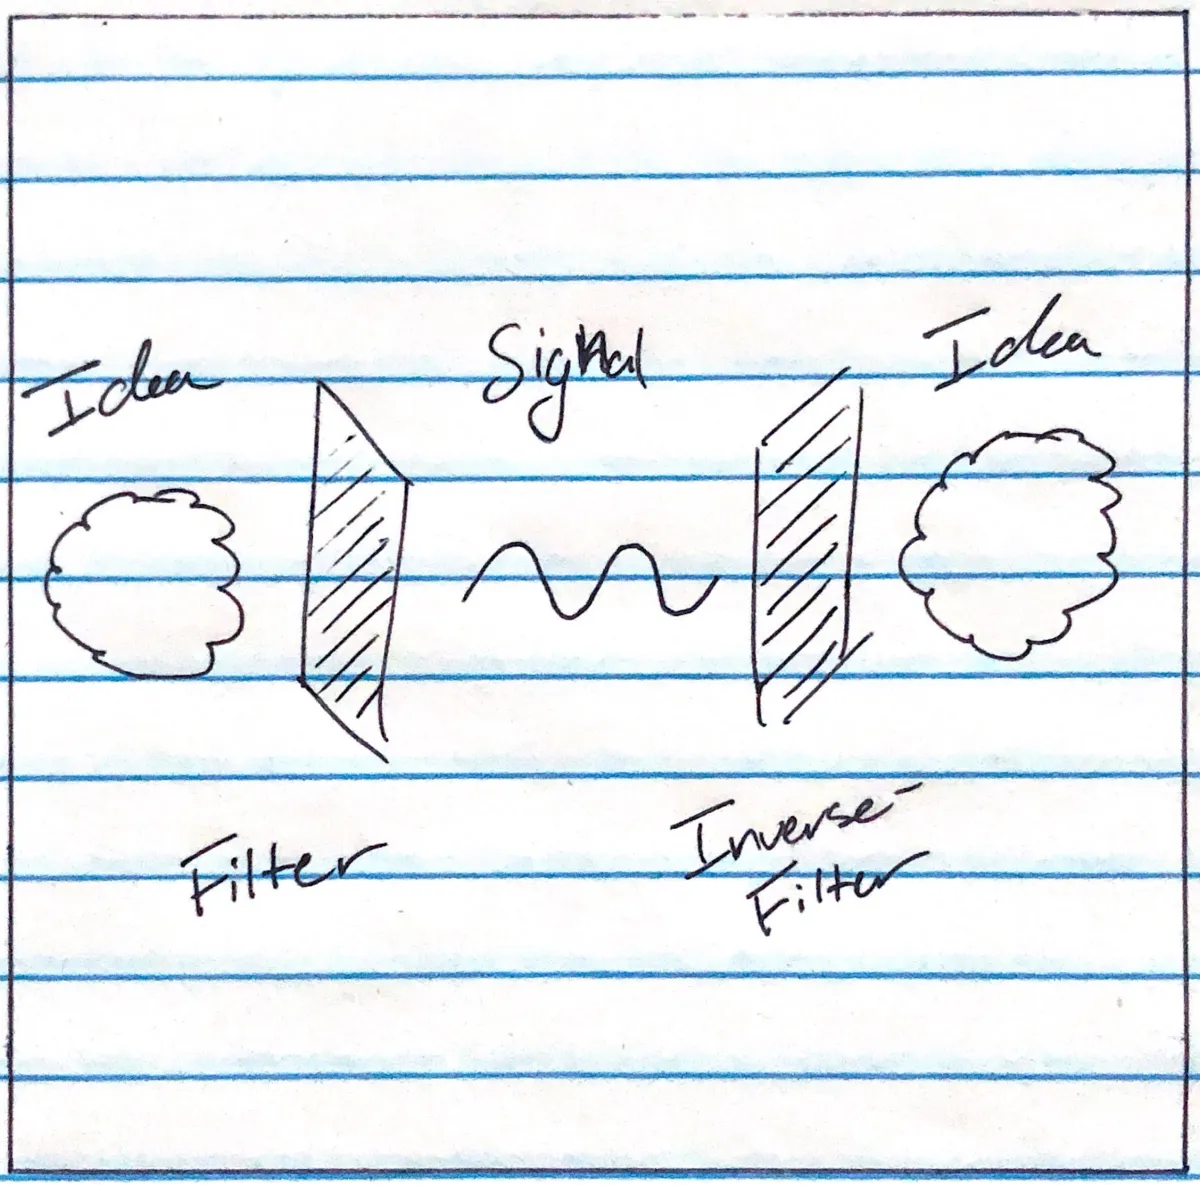 Idea
Signal
Idea
Filter
Inverse-
Filter